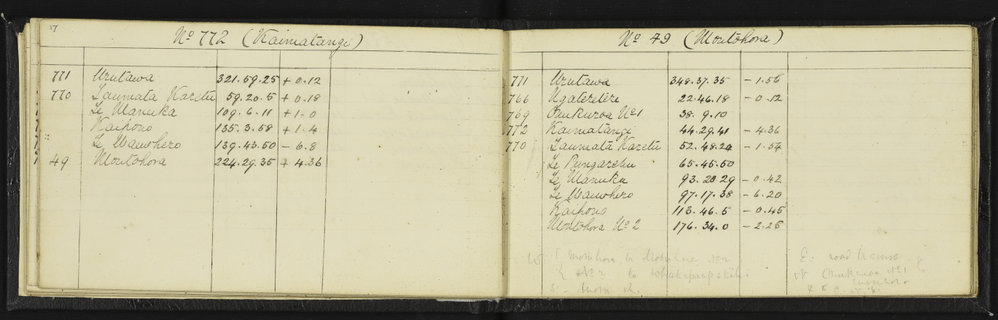 No 772 (Kaimatangi)
771 Urutawa 321.59.25 + 0.12
770 Taumata Karetu 59.20.5 + 0.18
Te Manuka 109.6.11 + 1.0
Kaihono 135.3.58 + 1.4
139.43.50 - 6.8
49 Moutohora 224.29.35 + 4.36
No 49 (Moutohora)
771 Urutawa 348.37.35 - 1.56
766 Ngaterere 22.46.18 - 0.12
769 No 1 38.9.10
772 Kaimatangi 44.29.41 - 4.36
770 Taumata Karetu 52.48.24
Te Pungarehu 65.45.50
Te Manuka 93.20.29 - 0.42
97.17.38 - 6.20
Kaihono 113.46.5 - 0.45
Moutohora No 2 176.34.0 - 2.25
Moutohora to
No 2 to
No 1